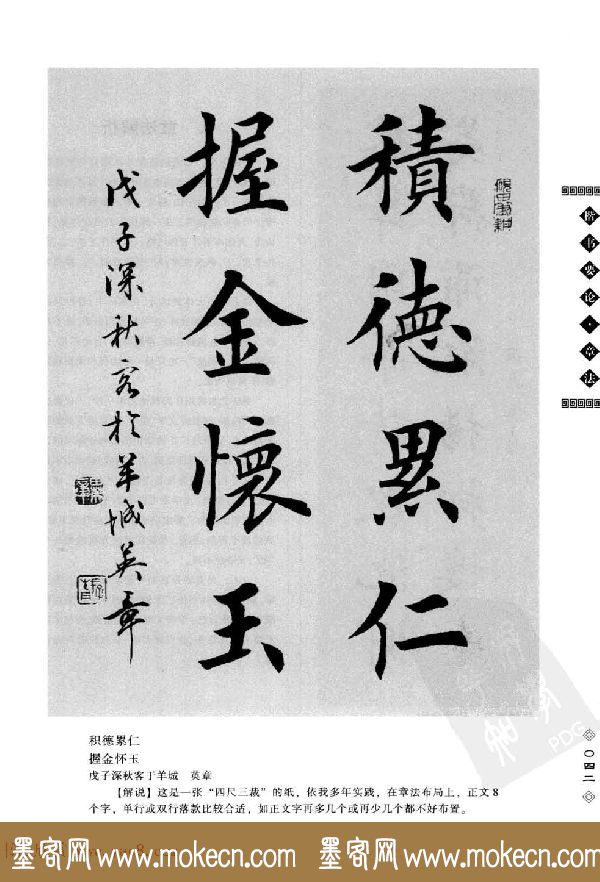 積德累仁
握金懷玉
戊子深秋客於羊城英章
楷书要论·章法
积德累仁
握金怀玉
戊子深秋客于羊城 英章
【解说】这是一张“四尺三裁”的纸,依我多年实践,在章法布局上,正文8
个字,单行或双行落款比较合适,如正文字再多几个或再少几个都不好布置。
〇四二
PDG
墨客网 www.mokecn.com 墨客网 www.mokecn.com